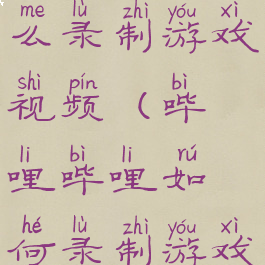 me lù zhì yóu xì
么录制游戏
shì pín bì
视频（哔
li bì li rú
哩哔哩如
hé lù zhì yóu xì
何录制游戏